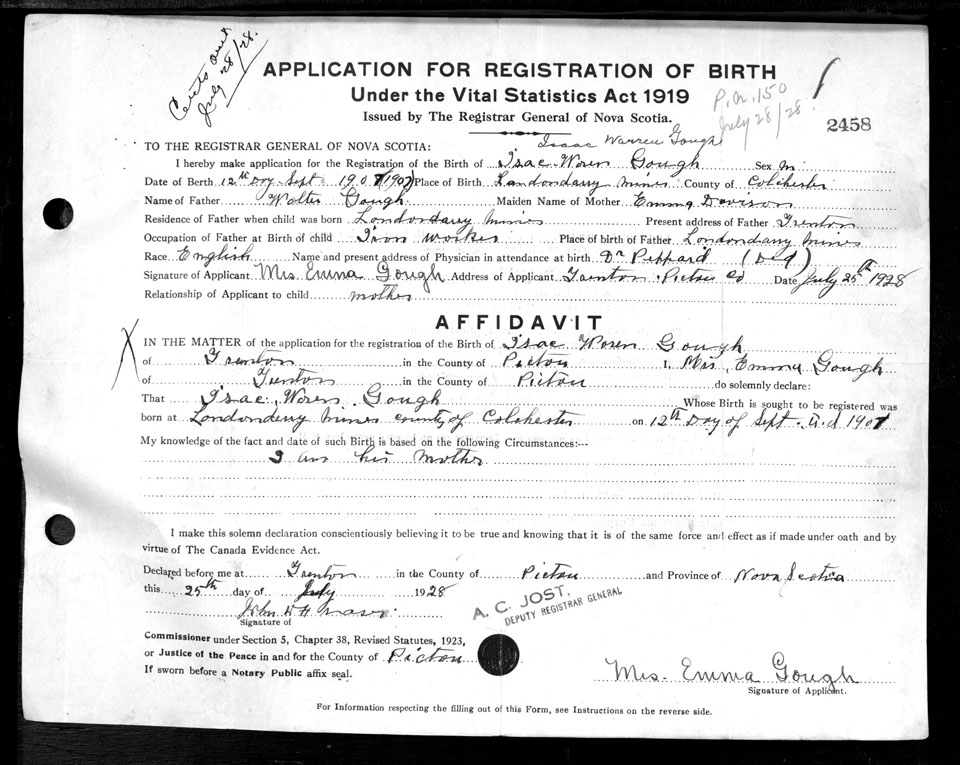 Certs out
July 28/28.
APPLICATION FOR REGISTRATION OF BIRTH
Under the Vital Statistics Act 1919
Issued by The Registrar General of Nova Scotia.
P.N. 150
July 28/28
2458
Isaac Warren Gough
TO THE REGISTRAR GENERAL OF NOVA SCOTIA:
I hereby make application for the Registration of the Birth of Isac Woren Gough Sex M
Date of Berth 12th Day Sept 1907 (1907) Place of Birth Londondarry mines County of Colchester
Name of Father Walter Gough Maiden Name of Mother Emma Davison
Residence of Father when child was born Londondarry mines Present address of Father Trenton
Occupation of Father at Birth of child Iron worker Place of birth of Father Londondarry mines
Race English Name and present address of Physician in attendance at birth Dr Peppard (Ded)
Signature of Applicant Mrs. Emma Gough Address of Applicant Trenton Pictou Co Date July 25th 1928
Relationship of Applicant to child mother
AFFIDAVIT
IN THE MATTER of the application for the registration of the Birth of Isac Woren Gough
of Trenton in the County of Pictou I, Mrs. Emma Gough
of Trenton in the County of Pictou do solemnly declare:
That Isac Woren Gough Whose Birth is sought to be registered was
born at Londonderry mines county of Colchester on 12th Day of Sept. A.d 1907
My knowledge of the fact and date of such Birth is based on the following Circumstances:--
I am his mother
I make this solemn declaration conscientiously believing it to be true and knowing that it is of the same force and effect as if made under oath and by
virtue of The Canada Evidence Act.
Declared before me at Trenton in the County of Pictou and Province of Nova Scotia
this 25th day of July 1928
A. C. JOST,
DEPUTY REGISTRAR GENERAL
John W H Fraser
Signature of
Commissioner under Section 5, Chapter 38, Revised Statutes, 1923,
or Justice of the Peace in and for the County of Pictou
If sworn before a Notary Public affix seal.
Mrs. Emma Gough
Signature of Applicant.
For Information respecting the filling out of this Form, see Instructions on the reverse side.